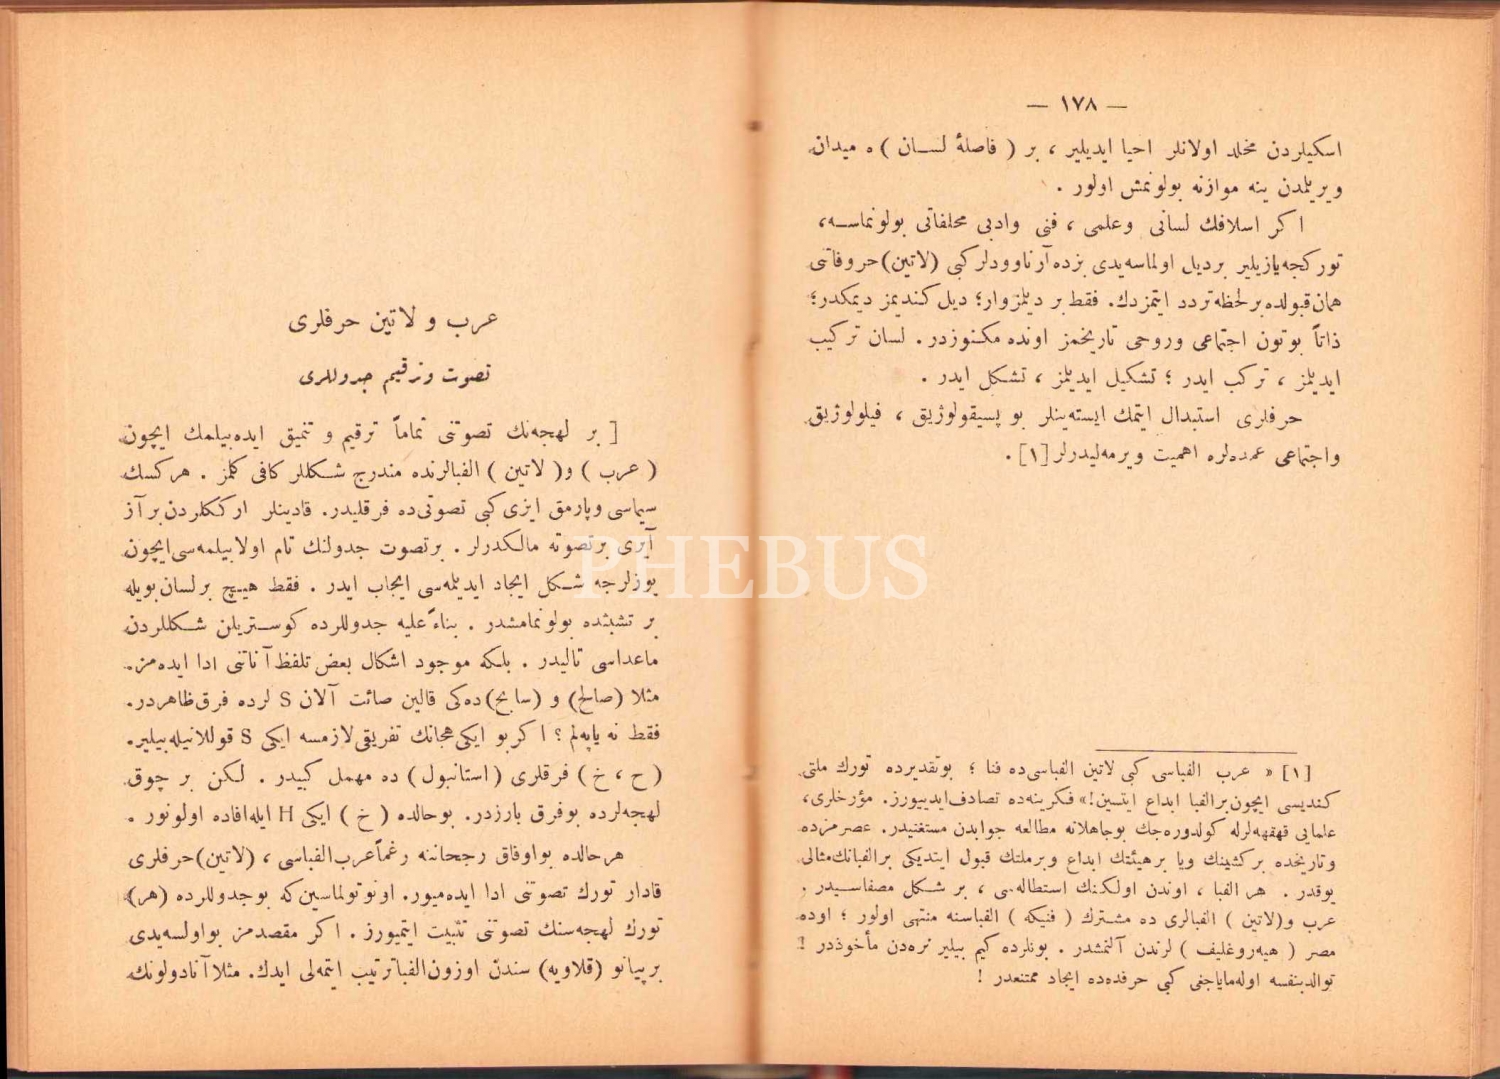 — ١٧٨ —
اسكیلردن مخلد اولانلر احیا ایدیلیر ، بر ( فاصلهٔ لسان ) ه میدان
ویریلمدن ینه موازنه بولونمش اولور .
اكر اسلافك لسانی وعلمی ، فنی وادبی مخلفاتی بولونماسه،
توركجه یازیلیر بردیل اولماسه یدی بزده آرناوودلر كبی (لاتین) حروفاتنی
همان قبولده برلحظه تردد ایتمزدك. فقط بر دیلمز وار؛ دیل كندیمز دیمكدر؛
ذاتاً بوتون اجتماعی وروحی تاریخمز اونده مكنوزدر . لسان تركیب
ایدیلمز ، تركب ایدر ؛ تشكیل ایدیلمز ، تشكل ایدر .
حرفلری استبدال ایتمك ایسته‌ینلر بو پسیقولوژیق ، فیلولوژیق
واجتماعی عمده‌لره اهمیت ویرمه‌لیدرلر [١] .
[١] « عرب الفباسی كبی لاتین الفباسی ده فنا ؛ بوتقدیرده تورك ملتی
كندیسی ایچون برالفبا ابداع ایتسین!» فكرینه‌ده تصادف ایدییورز. مؤرخلری،
علمایی قهقهه‌لرله كولدوره‌جك بوجاهلانه مطالعه جوابدن مستغنیدر. عصرمزده
وتاریخده بركشینك ویا برهیئتك ابداع وبرملتك قبول ایتدیكی برالفبانك مثالی
یوقدر . هر الفبا ، اوندن اولكنك استطاله‌سی ، بر شكل مصفاسیدر .
عرب و(لاتین ) الفبالری ده مشترك ( فنیكه ) الفباسنه منتهی اولور ؛ اوده
مصر ( هیه‌روغلیف ) لرندن آلنمشدر . بونلرده كیم بیلیر نره‌دن مأخوذدر !
توالدبنفسه اوله‌مایاجغی كبی حرفده‌ده ایجاد ممتنعدر !
عرب و لاتین حرفلری
تصوت وترقیم جدوللری
[ بر لهجه‌نك تصوتنی تماماً ترقیم و تنمیق ایده‌بیلمك ایچون
( عرب ) و( لاتین ) الفبالرنده مندرج شكللر كافی كلمز . هركسك
سیماسی وپارمق ایزی كبی تصوتی ده فرقلیدر. قادینلر ارككلردن بر آز
آیری برتصوته مالكدرلر . برتصوت جدولنك تام اولابیلمه‌سی ایچون
یوزلرجه شكل ایجاد ایدیلمه‌سی ایجاب ایدر . فقط هیچ برلسان بویله
بر تشبثده بولونمامشدر . بناءً علیه جدوللرده كوستریلن شكللردن
ماعداسی تالیدر . بلكه موجود اشكال بعض تلفظ آناتنی ادا ایده‌مز.
مثلا (صالح) و (سابح) ده‌كی قالین صائت آلان S لرده فرق ظاهردر.
فقط نه یاپه‌لم ؟ اكر بو ایكی هجانك تفریقی لازمسه ایكی S قوللانیله‌بیلیر.
( ح ، خ ) فرقلری (استانبول) ده مهمل كبیدر . لكن بر چوق
لهجه‌لرده بوفرق بارزدر. بوحالده ( خ ) ایكی H ایله افاده اولونور .
هرحالده بواوفاق رجحاننه رغماً عرب الفباسی ، (لاتین) حرفلری
قادار تورك تصوتنی ادا ایده‌میور. اونوتولماسین كه بوجدوللرده (هر)
تورك لهجه‌سنك تصوتنی تثبیت ایتمیورز . اكر مقصدمز بو اولسه‌یدی
برپیانو (قلاویه) سندن اوزون الفبا ترتیب ایتمه‌لی ایدك. مثلا آنادولونك
PHEBUS